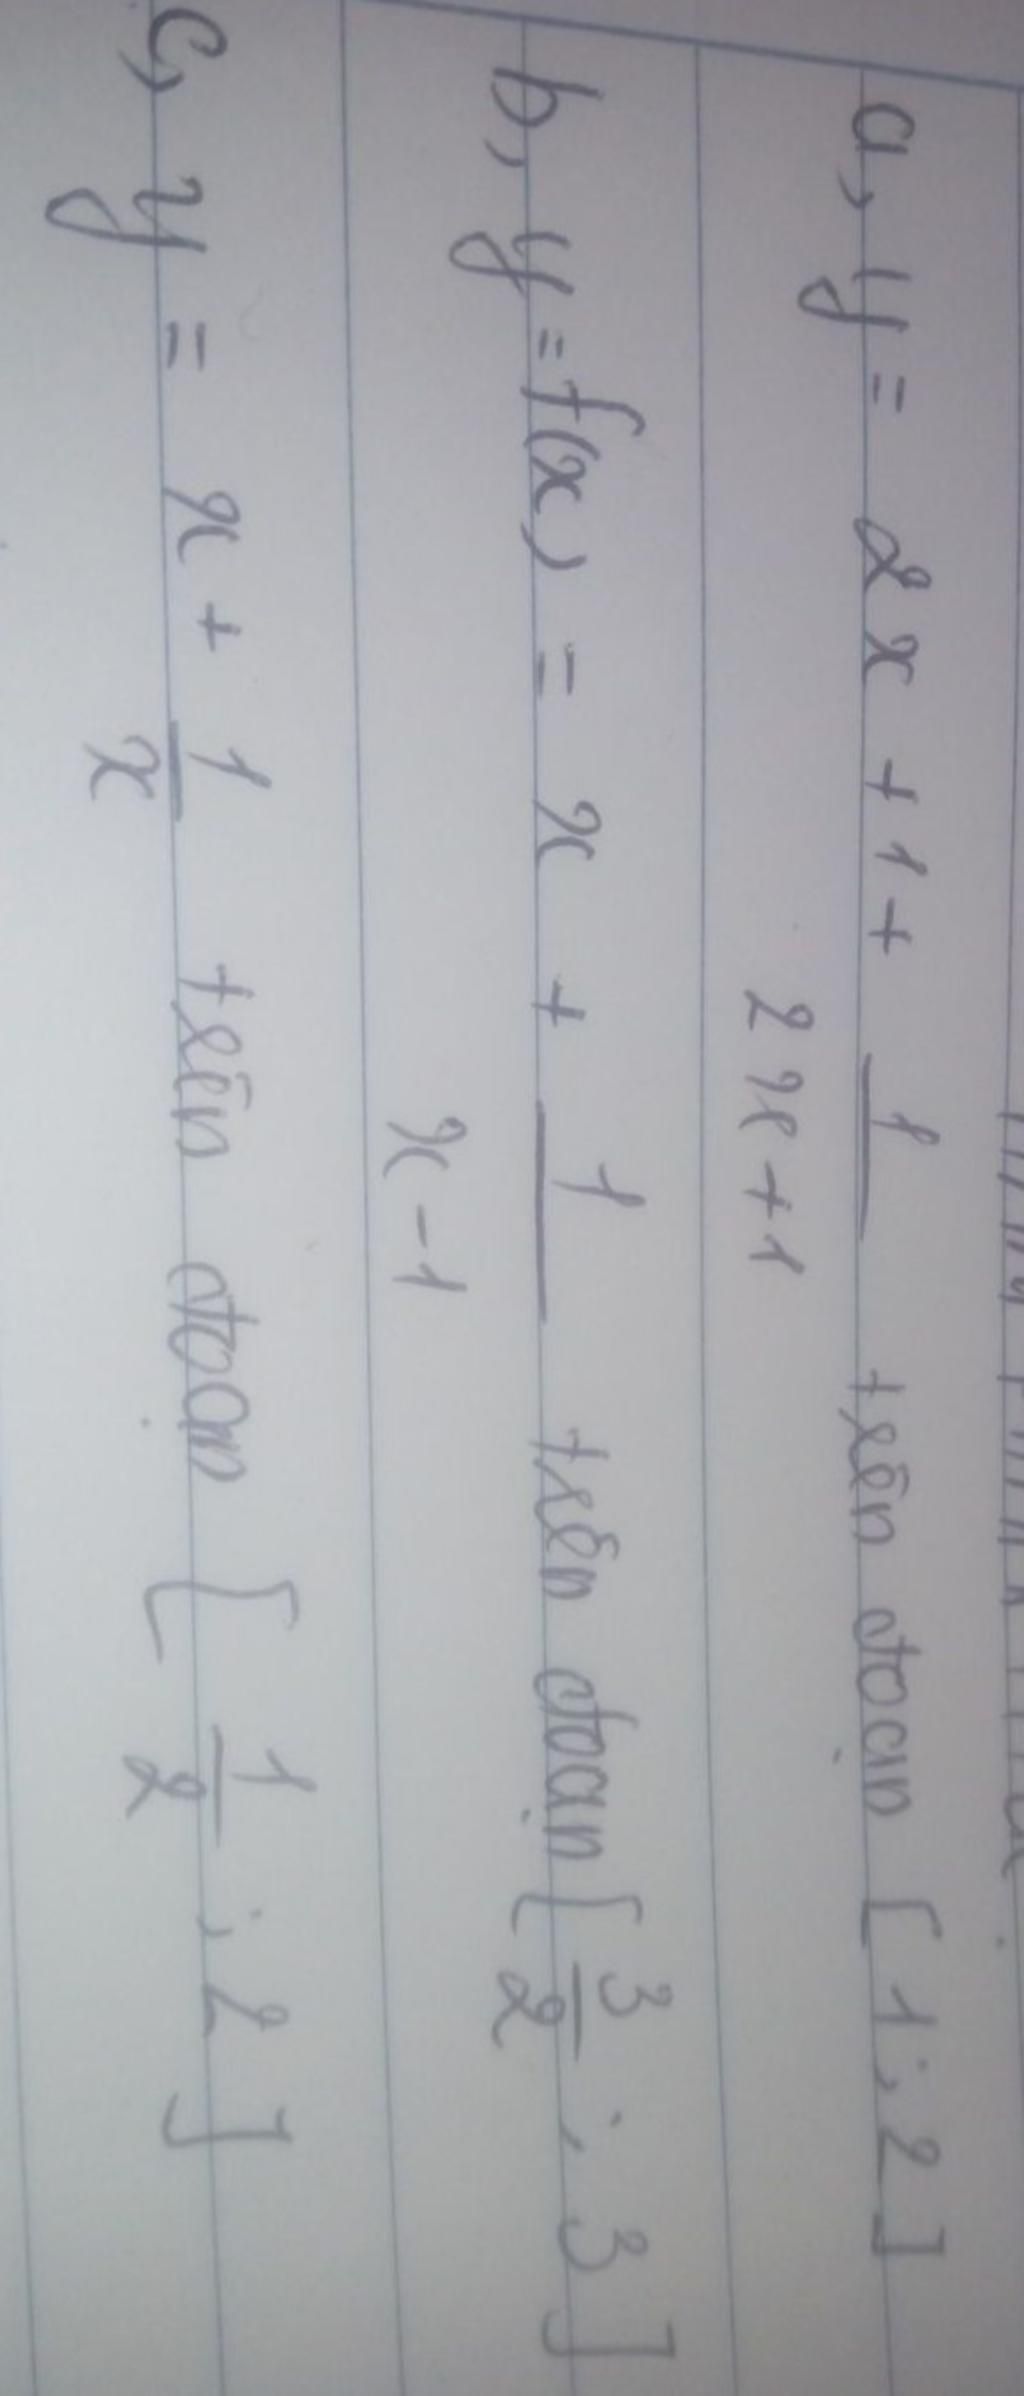 a, y = 2x + 1 + 1/(2x + 1) trên đoạn [1; 2]
b, y = f(x) = x + 1/(x - 1) trên đoạn [3/2; 3]
c, y = x + 1/x trên đoạn [1/2; 2]